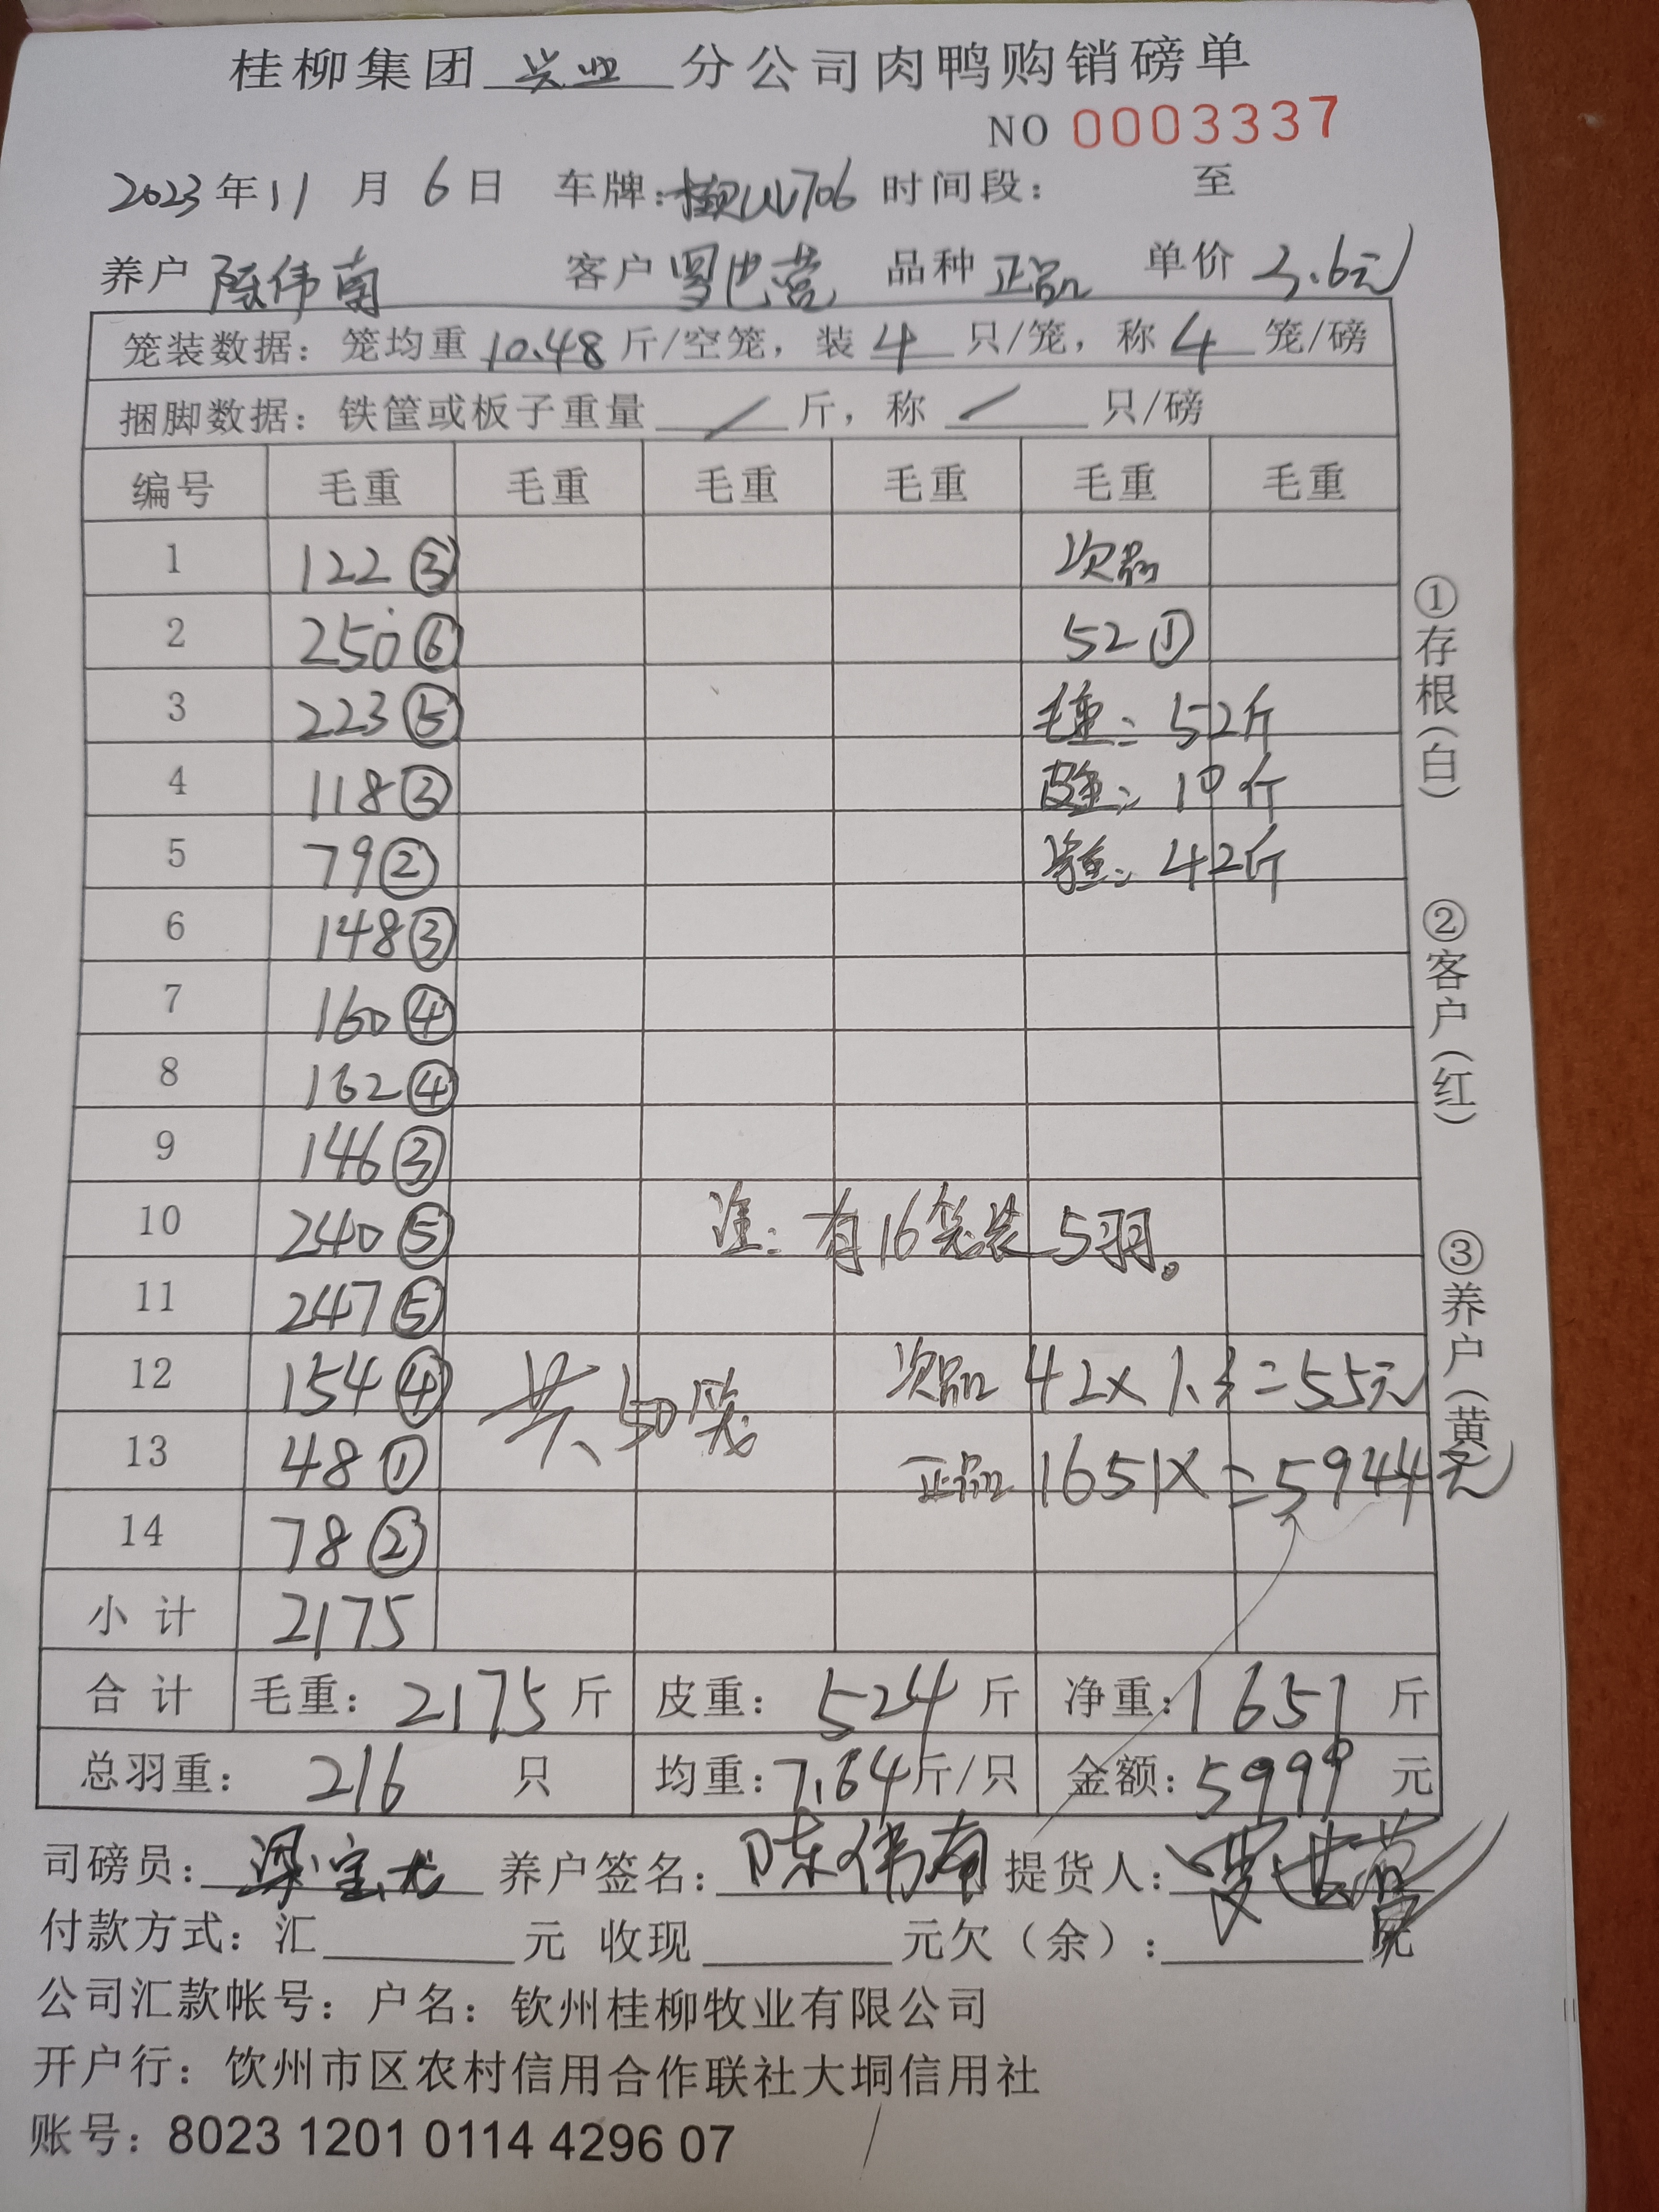 桂柳集团 兴业 分公司肉鸭购销磅单
NO 0003337
2023年11月6日 车牌: 时间段: 至
养户 陈伟南 客户 罗世营 品种 正品 单价 3.6元
笼装数据: 笼均重 10.48 斤/空笼, 装 4 只/笼, 称 4 笼/磅
捆脚数据: 铁筐或板子重量 / 斤, 称 / 只/磅
编号 毛重 毛重 毛重 毛重 毛重 毛重
1 122③ 次品
2 250⑥ 52①
3 223⑤ 毛重: 52斤
4 118③ 皮重: 10斤
5 79② 净重: 42斤
6 148③
7 160④
8 162④
9 146③
10 240⑤ 注: 有16笼装5羽。
11 247⑤
12 154④ 共50笼 次品 42×1.3=55元
13 48① 正品 1651×=5944元
14 78②
小计 2175
合计 毛重: 2175 斤 皮重: 524 斤 净重: 1651 斤
总羽重: 216 只 均重: 7.64 斤/只 金额: 5999 元
司磅员: 梁宝龙 养户签名: 陈伟南 提货人: 罗世营
付款方式: 汇 元 收现 元欠(余): 元
公司汇款帐号: 户名: 钦州桂柳牧业有限公司
开户行: 钦州市区农村信用合作联社大垌信用社
账号: 8023 1201 0114 4296 07
①存根(白)
②客户(红)
③养户(黄)